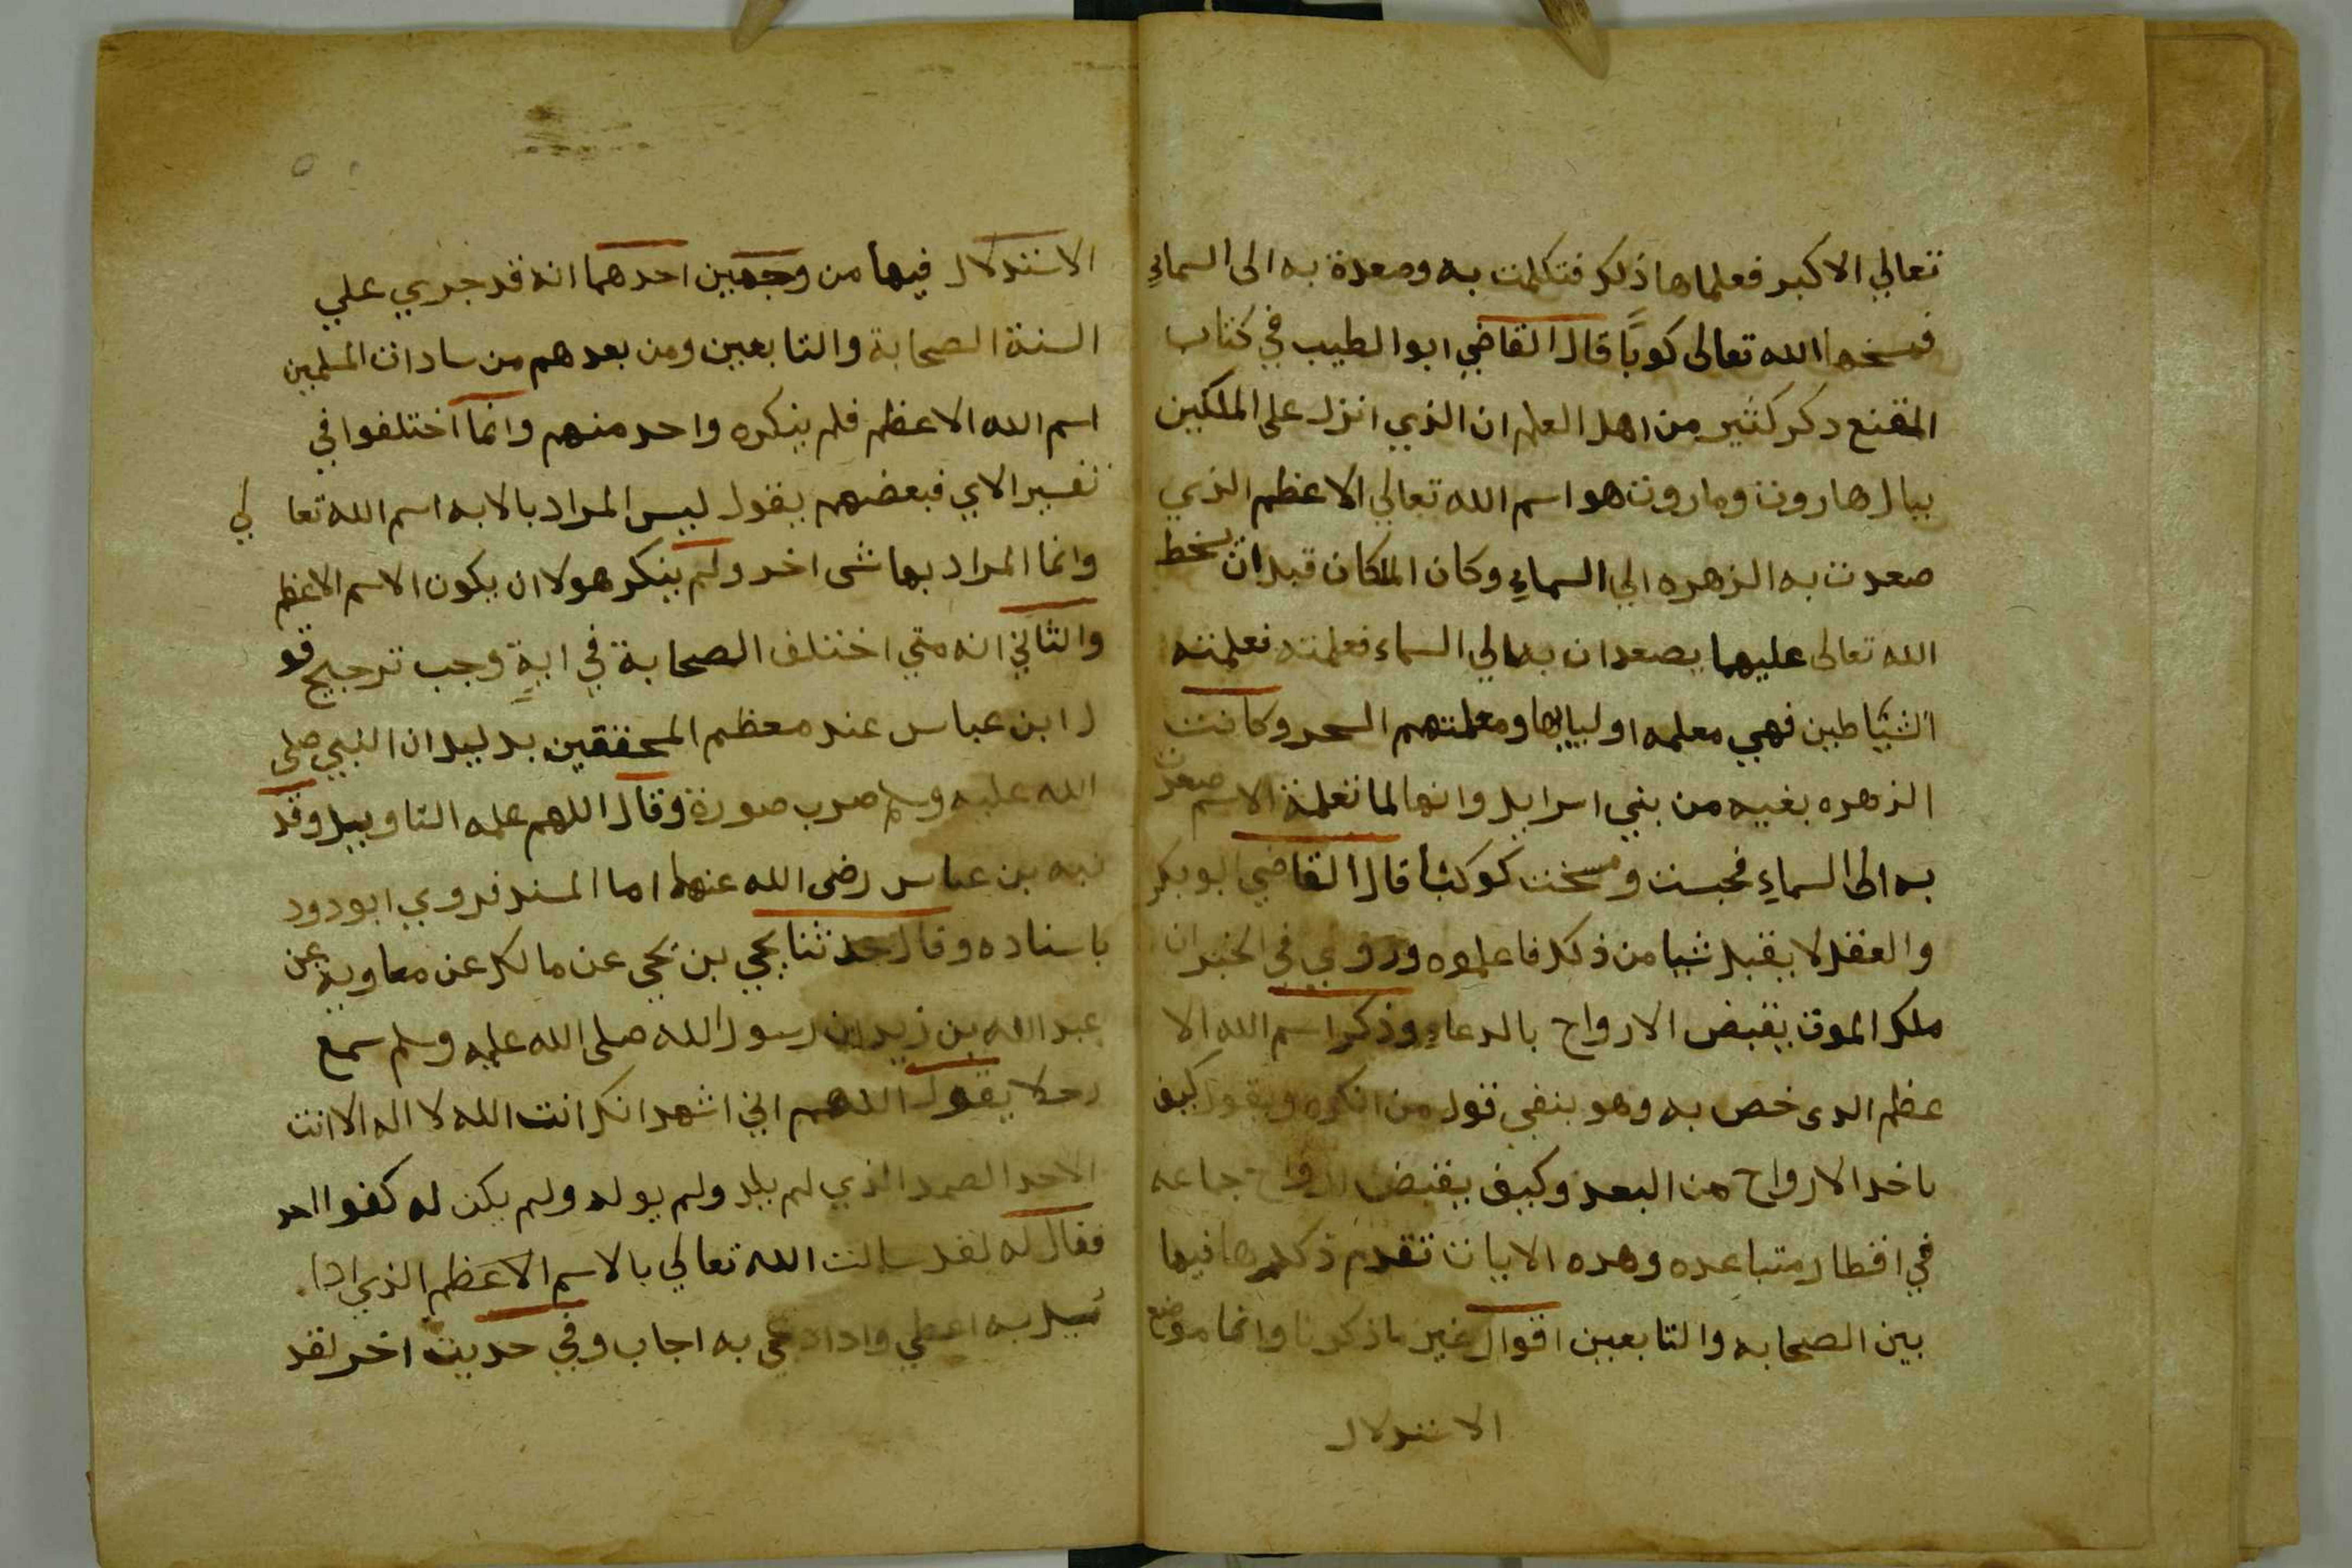 تعالي الاكبر فعلماها ذلك فتكلمت به وصعدة به الى السماءِ
فمسخها الله تعالى كوبًا قال القاضي ابوا لطيب في كتاب
المقنع دكر كثير من اهل العلم ان الذي انزل على الملكين
ببابل هاروت وماروت هو اسم الله تعالي الاعظم الذي
صعدت به الزهره الي السماءِ وكان الملكان قبل ان يسخط
الله تعالى عليهما يصعدان به الي السماء فعلمته فعلمته
الشياطين فهي معلمه اولياىها ومعلمتهم السحر وكانت
الزهره بغيه من بني اسرايل وانها لما تعلمة الاسم صعدت
به الى السماءِ فحبست ومسخت كوكبًا قال القاضي ابو بكر
والعقل لا يقبل شيا من ذلك فاعلموه وروي في الخبر ان
ملك الموت يقبض الارواح بالدعاءِ وذكر اسم الله الا
عظم الدى خص به وهو ينفي قول من انكره ويقول كيف
ياخد الارواح من البعد وكيف يقبض ارواح جماعه
في اقطار متباعده وهده الايات تقدم ذكرها فيها
بين الصحابه والتابعين اقوال غير ما ذكرنا وانما موضع
الاستدلال
الاستدلال فيها من وجهين احدهما انه قد جري علي
السنة الصحابة والتابعين ومن بعدهم من سادات المسلمين
اسم الله الاعظم فلم ينكره واحد منهم وانما اختلفوا في
تفسير الاي فبعضهم يقول ليس المراد بالايه اسم الله تعا لي
وانما المراد بها شى اخر ولم ينكر هولا ان يكون الاسم الاعظم
والثاني انه متي اختلف الصحابة في ايةٍ وجب ترجيح قو
ل ابن عباس عند معظم المحققين بدليل ان النبي صلى
الله عليه وسلم ضرب صدرة وقال اللهم علمه التاويل وقد
نبه بن عباس رضى الله عنهما اما المسند فروي ابو دود
باسناده وقال حدثنا يحيي بن يحيى عن مالك عن معاوية عن
عبد الله بن زيد ان رسول الله صلى الله عليه وسلم سمع
رجلا يقول اللهم اني اشهد انك انت الله لا اله الا انت
الاحد الصمد الذي لم يلد ولم يولد ولم يكن له كفوا احد
فقال له لقد سالت الله تعالي بالاسم الاعظم الذي ادا
سيل به اعطي وادا دعي به اجاب وفي حديث اخر لقد